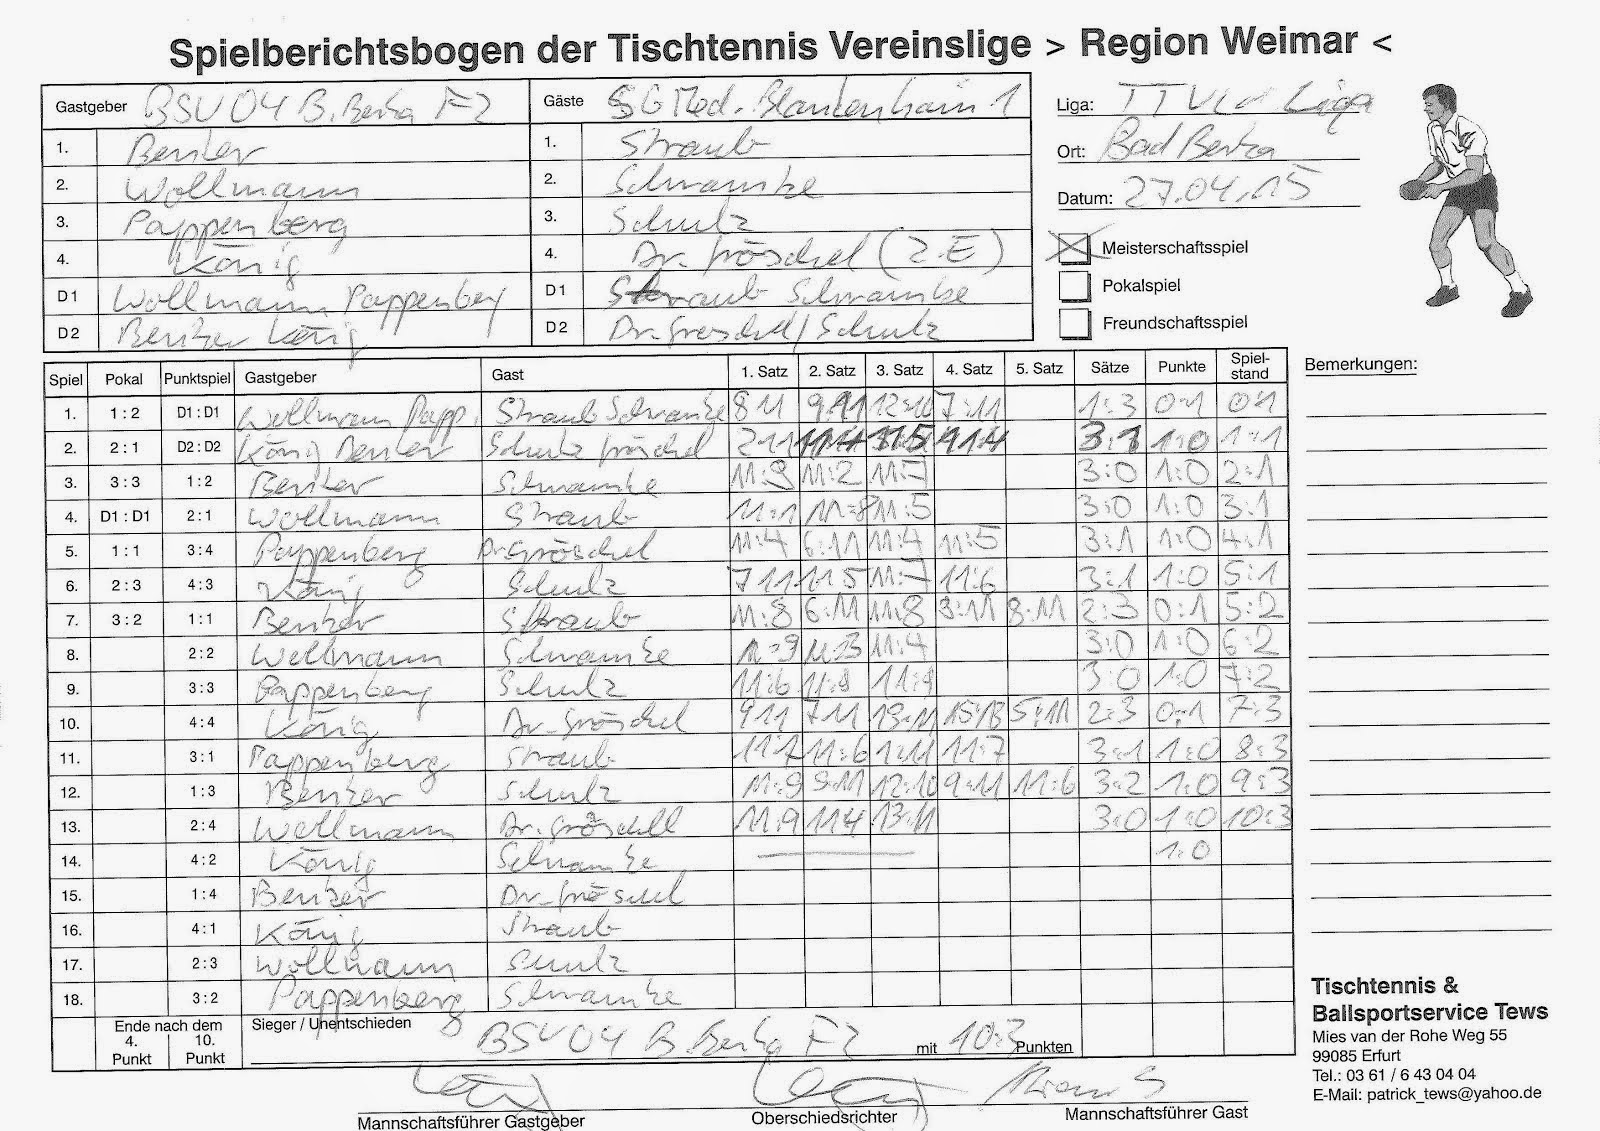 Spielberichtsbogen der Tischtennis Vereinslige > Region Weimar <
Gastgeber BSV 04 B. Berka F2 Gäste SG Med. Blankenhain 1 Liga: TTV Liga
1. Benker 1. Straub Ort: Bad Berka
2. Wollmann 2. Schwamke Datum: 27.04.15
3. Pappenberg 3. Schulz
4. König 4. Dr. Gröschel (2.E) Meisterschaftsspiel
D1 Wollmann Pappenberg D1 Straub Schwamke Pokalspiel
D2 Benker König D2 Dr. Gröschel / Schulz Freundschaftsspiel
Spiel Pokal Punktspiel Gastgeber Gast 1. Satz 2. Satz 3. Satz 4. Satz 5. Satz Sätze Punkte Spiel-stand Bemerkungen:
1. 1 : 2 D1 : D1 Wollmann Papp. Straub Schwamke 8 11 9 11 12:10 7:11 1:3 0:1 0:1
2. 2 : 1 D2 : D2 König Benker Schulz Gröschel 2 11 11:4 11:5 11:4 3:1 1:0 1:1
3. 3 : 3 1 : 2 Benker Schwamke 11:9 11:2 11:7 3:0 1:0 2:1
4. D1 : D1 2 : 1 Wollmann Straub 11:1 11:8 11:5 3:0 1:0 3:1
5. 1 : 1 3 : 4 Pappenberg Dr. Gröschel 11:4 6:11 11:4 11:5 3:1 1:0 4:1
6. 2 : 3 4 : 3 König Schulz 7 11 11 5 11:7 11:6 3:1 1:0 5:1
7. 3 : 2 1 : 1 Benker Straub 11:8 6:11 11:8 3:11 8:11 2:3 0:1 5:2
8. 2 : 2 Wollmann Schwamke 11:9 11:3 11:4 3:0 1:0 6:2
9. 3 : 3 Pappenberg Schulz 11:6 11:9 11:9 3:0 1:0 7:2
10. 4 : 4 König Dr. Gröschel 9 11 7 11 13:11 15:13 5:11 2:3 0:1 7:3
11. 3 : 1 Pappenberg Straub 11:7 11:6 1:11 11:7 3:1 1:0 8:3
12. 1 : 3 Benker Schulz 11:9 9:11 12:10 9:11 11:6 3:2 1:0 9:3
13. 2 : 4 Wollmann Dr. Gröschell 11:9 11 4 13:11 3:0 1:0 10:3
14. 4 : 2 König Schwamke 1:0
15. 1 : 4 Benker Dr. Gröschel
16. 4 : 1 König Straub
17. 2 : 3 Wollmann Schulz
18. 3 : 2 Pappenberg Schwamke
Ende nach dem
4. Punkt 10. Punkt
Sieger / Unentschieden BSV 04 B. Berka F2 mit 10:3 Punkten
Mannschaftsführer Gastgeber Oberschiedsrichter Mannschaftsführer Gast
Tischtennis &
Ballsportservice Tews
Mies van der Rohe Weg 55
99085 Erfurt
Tel.: 03 61 / 6 43 04 04
E-Mail: patrick_tews@yahoo.de